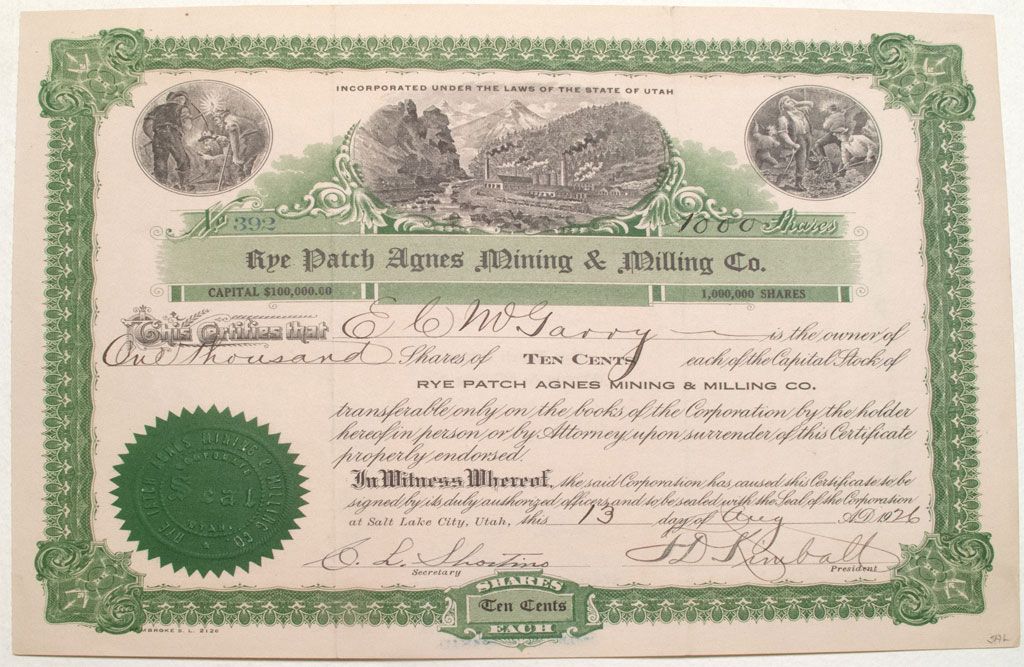 INCORPORATED UNDER THE LAWS OF THE STATE OF UTAH
No 392
1000 Shares
Rye Patch Agnes Mining & Milling Co.
CAPITAL $100,000.00
1,000,000 SHARES
This Certifies that E C McGarry is the owner of
One thousand Shares of TEN CENTS each of the Capital Stock of
RYE PATCH AGNES MINING & MILLING CO.
transferable only on the books of the Corporation by the holder
hereof in person or by Attorney upon surrender of this Certificate
properly endorsed.
In Witness Whereof, the said Corporation has caused this Certificate to be
signed by its duly authorized officers and to be sealed with the Seal of the Corporation
at Salt Lake City, Utah, this 13 day of Aug A.D. 1926
RYE PATCH AGNES MINING & MILLING CO.
CORPORATE
Seal
UTAH
C. L.
Secretary
Kimball
President
SHARES
Ten Cents
EACH
S. L. 2126